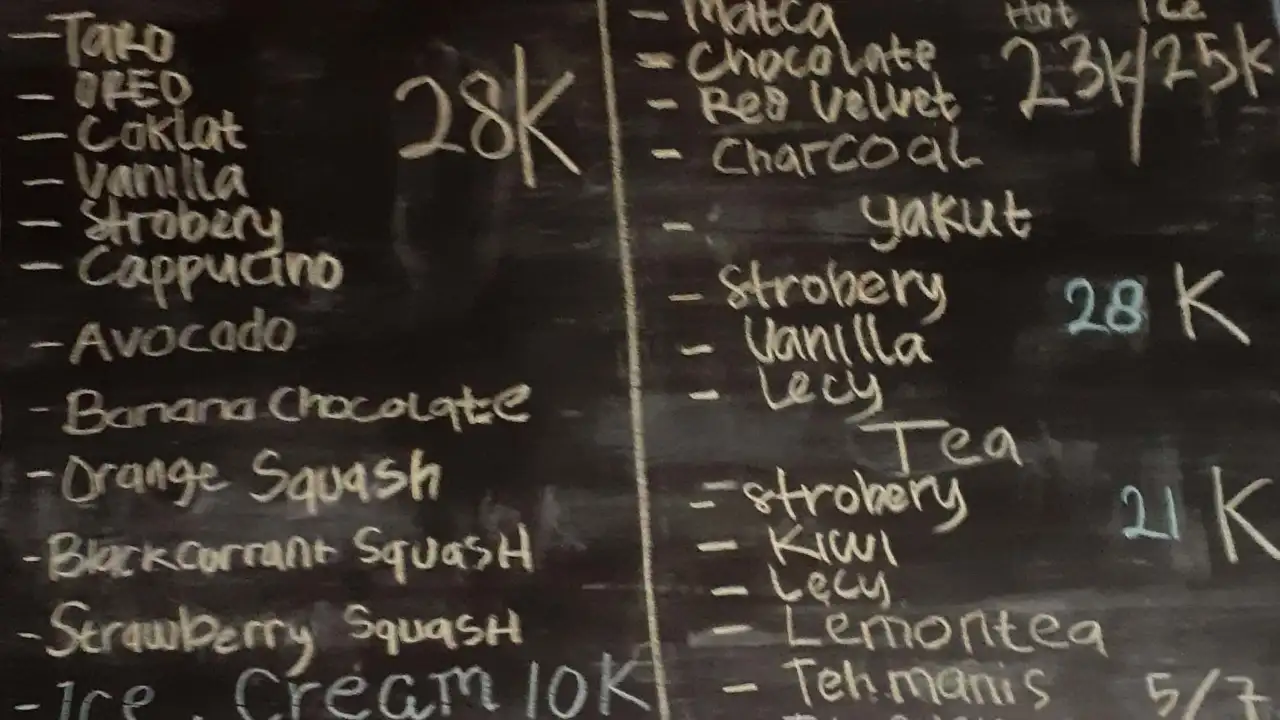 - Taro
- OREO
- Coklat
- Vanilla
- Strobery
- Cappucino
28K
- Avocado
- Banana Chocolate
- Orange Squash
- Blackcorrant SquasH
- Strawberry SquasH
- Ice. Cream 10K
- Matca
Hot Ice
- Chocolate 23K/25K
- Red Velvet
- CharcoaL
- Yakut
- Strobery 28 K
- Vanilla
- Lecy
Tea
- Strobery 21 K
- Kiwi
- Lecy
- Lemontea
- Teh manis 5/7